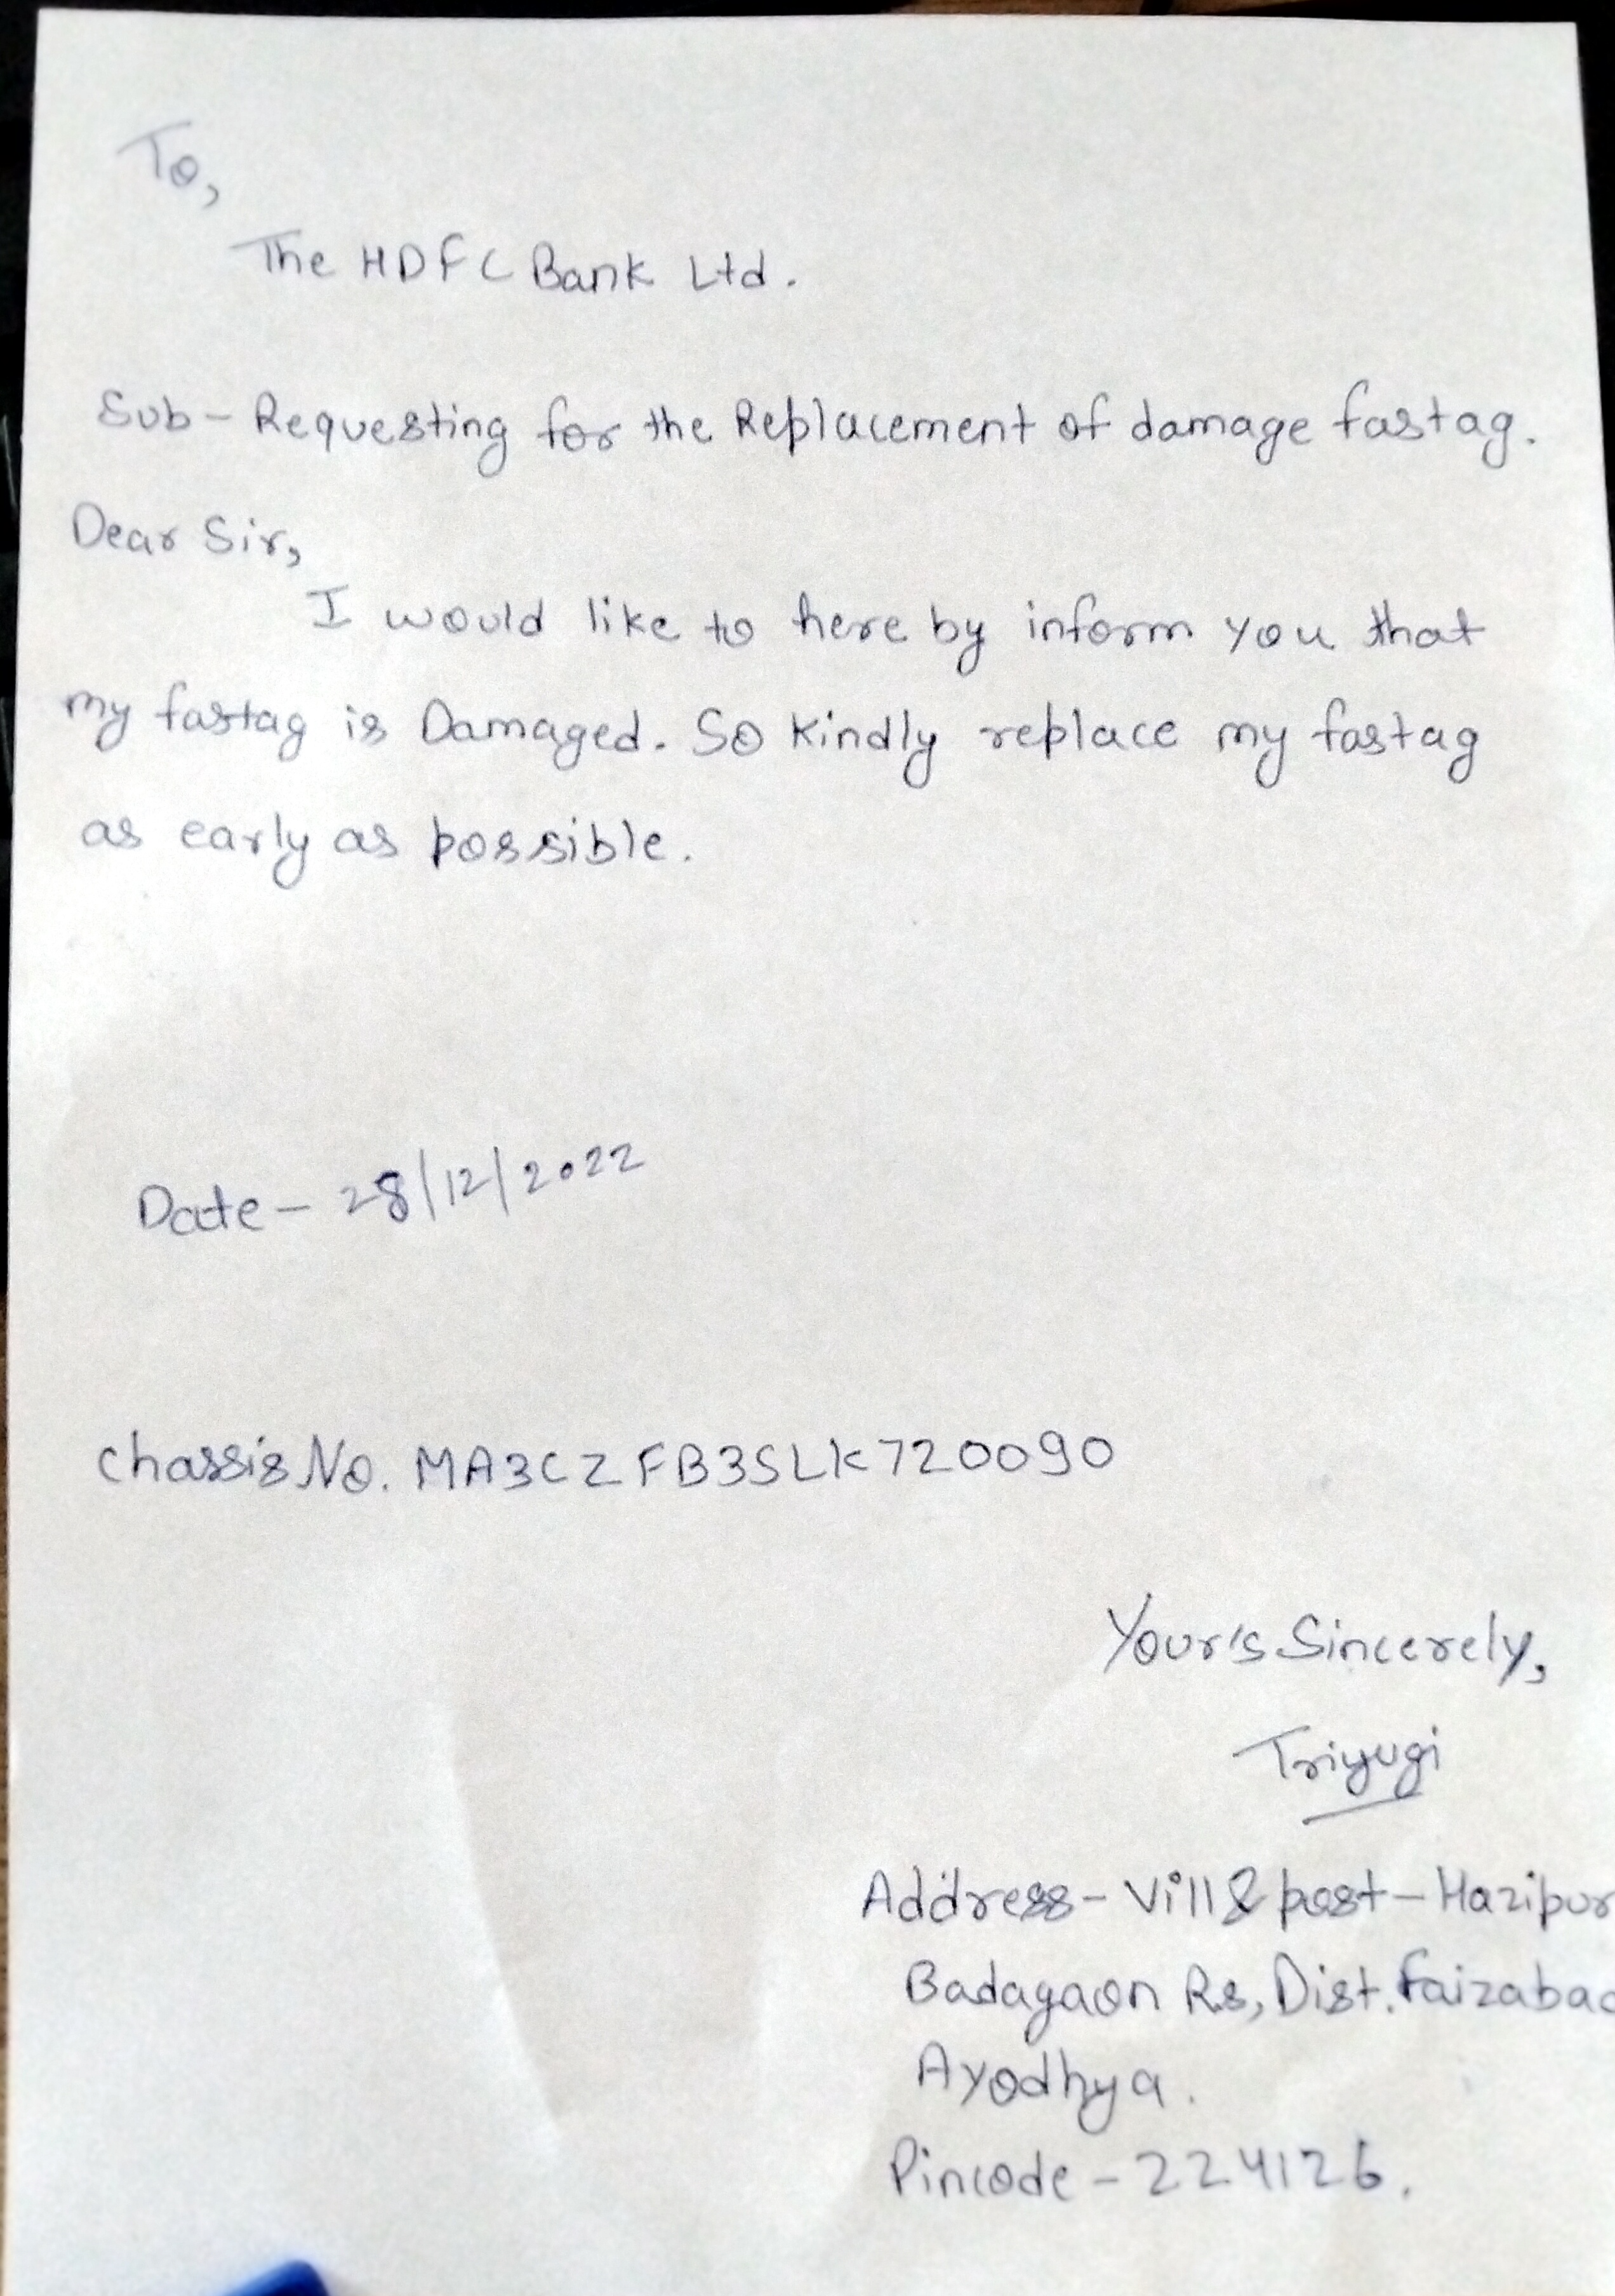 To,
The HDFC Bank Ltd.
Sub - Requesting for the Replacement of damage fastag.
Dear Sir,
I would like to here by inform you that
my fastag is Damaged. So Kindly replace my fastag
as early as possible.
Date - 28/12/2022
Chassis No. MA3CZFB3SLK720090
Your's Sincerely,
Triyugi
Address - Vill & post - Hazipur
Badagaon Rs, Dist. Faizabad
Ayodhya.
Pincode - 224126.